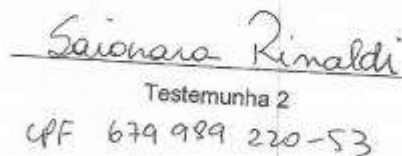 Saionara Rinaldi
Testemunha 2
CPF 679 989 220-53